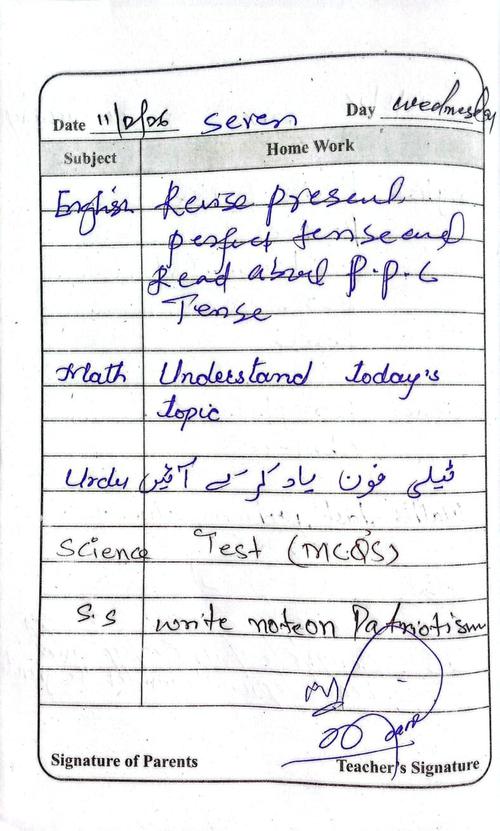 Date 11/2/26 seven Day wednesday
Subject Home Work
English Revise present
perfect tense and
Read about P.P.C
Tense
Math Understand today's
topic
Urdu ٹیلی فون یاد کر کے آئیں
Science Test (MCQS)
S.S write note on Patriotism
Signature of Parents Teacher's Signature